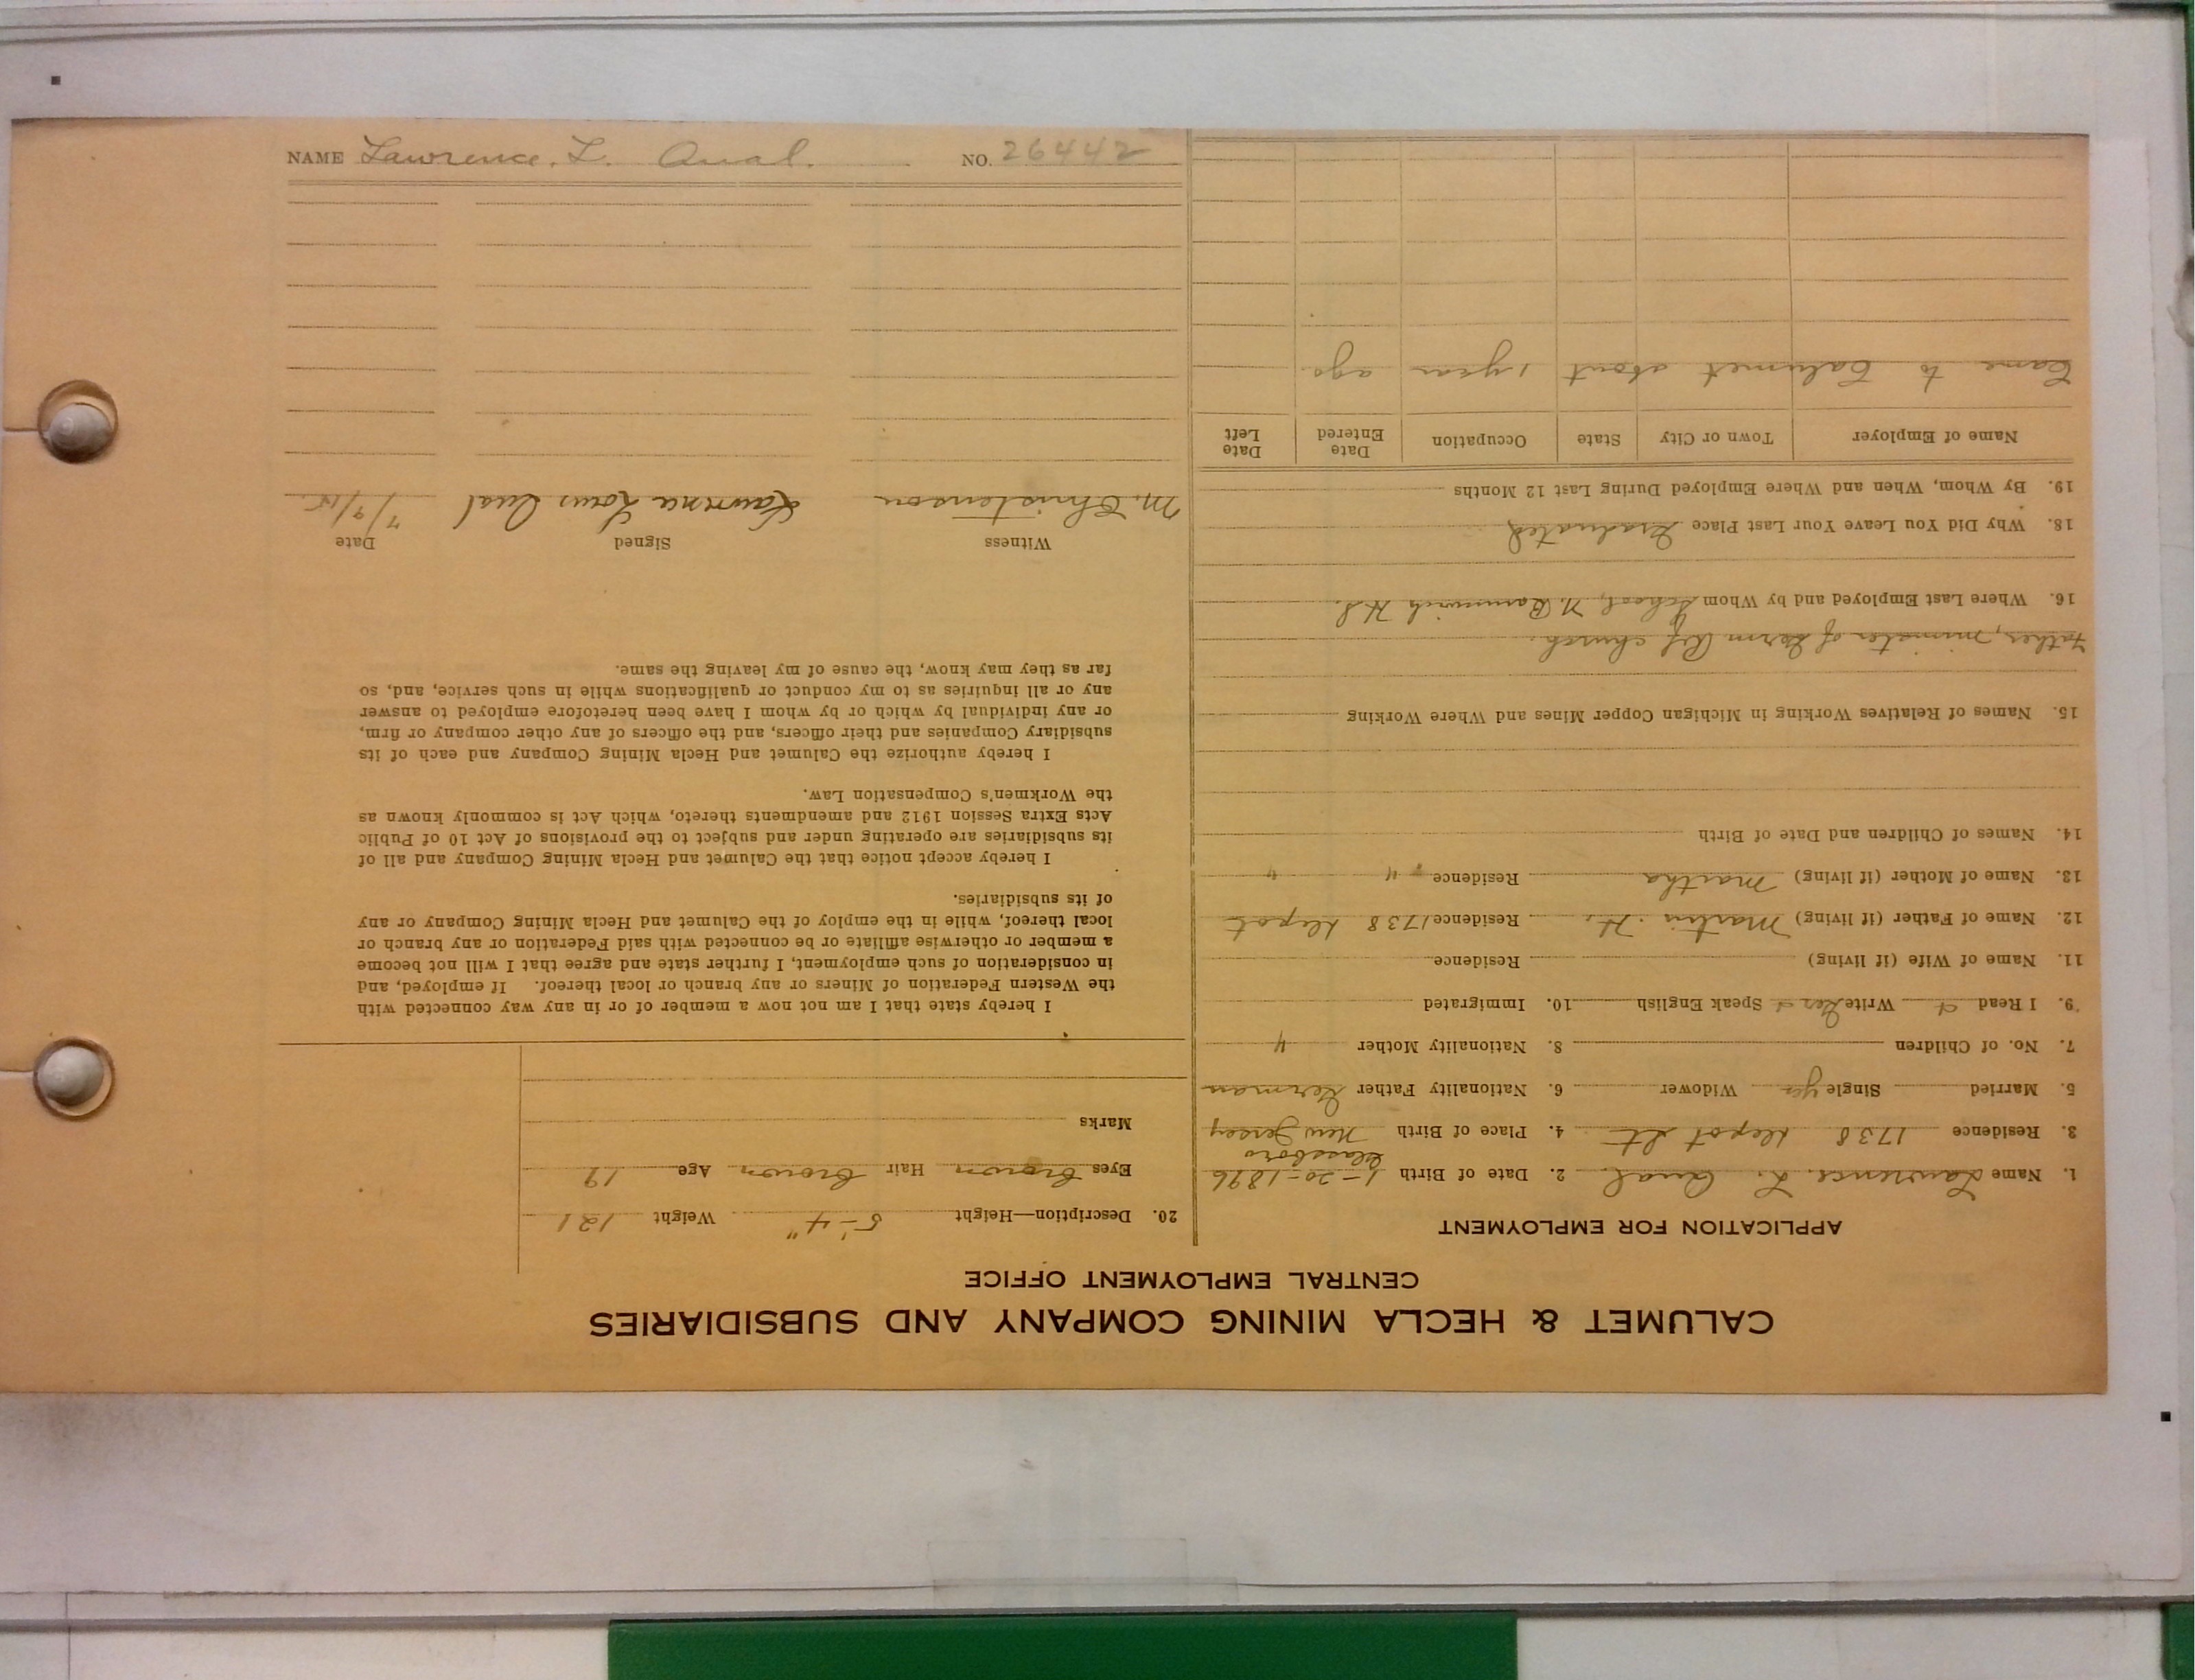 CALUMET & HECLA MINING COMPANY AND SUBSIDIARIES
CENTRAL EMPLOYMENT OFFICE
APPLICATION FOR EMPLOYMENT
1. Name Lawrence. L. Qual. 2. Date of Birth 1-20-1896
Glassboro
3. Residence 1738 Depot St 4. Place of Birth New Jersey
5. Married Single yes Widower 6. Nationality Father German
7. No. of Children 8. Nationality Mother "
9. I Read Write Speak English 10. Immigrated
11. Name of Wife (if living) Residence
12. Name of Father (if living) Martin. H. Residence 1738 Depot
13. Name of Mother (if living) Martha Residence " "
14. Names of Children and Date of Birth
15. Names of Relatives Working in Michigan Copper Mines and Where Working
Father, minister of Germ Ref church.
16. Where Last Employed and by Whom School, N. H.S.
18. Why Did You Leave Your Last Place Graduated
19. By Whom, When and Where Employed During Last 12 Months
Name of Employer Town or City State Occupation Date Entered Date Left
Came to Calumet about 1 year ago.
20. Description—Height 5'-4" Weight 121
Eyes brown Hair brown Age 19
Marks
I hereby state that I am not now a member of or in any way connected with
the Western Federation of Miners or any branch or local thereof. If employed, and
in consideration of such employment, I further state and agree that I will not become
a member or otherwise affiliate or be connected with said Federation or any branch or
local thereof, while in the employ of the Calumet and Hecla Mining Company or any
of its subsidiaries.
I hereby accept notice that the Calumet and Hecla Mining Company and all of
its subsidiaries are operating under and subject to the provisions of Act 10 of Public
Acts Extra Session 1912 and amendments thereto, which Act is commonly known as
the Workmen's Compensation Law.
I hereby authorize the Calumet and Hecla Mining Company and each of its
subsidiary Companies and their officers, and the officers of any other company or firm,
or any individual by which or by whom I have been heretofore employed to answer
any or all inquiries as to my conduct or qualifications while in such service, and, so
far as they may know, the cause of my leaving the same.
Witness Signed Date
M. Christenson Lawrence Louis Qual 7/9/15.
NAME Lawrence. L. Qual. NO. 26442